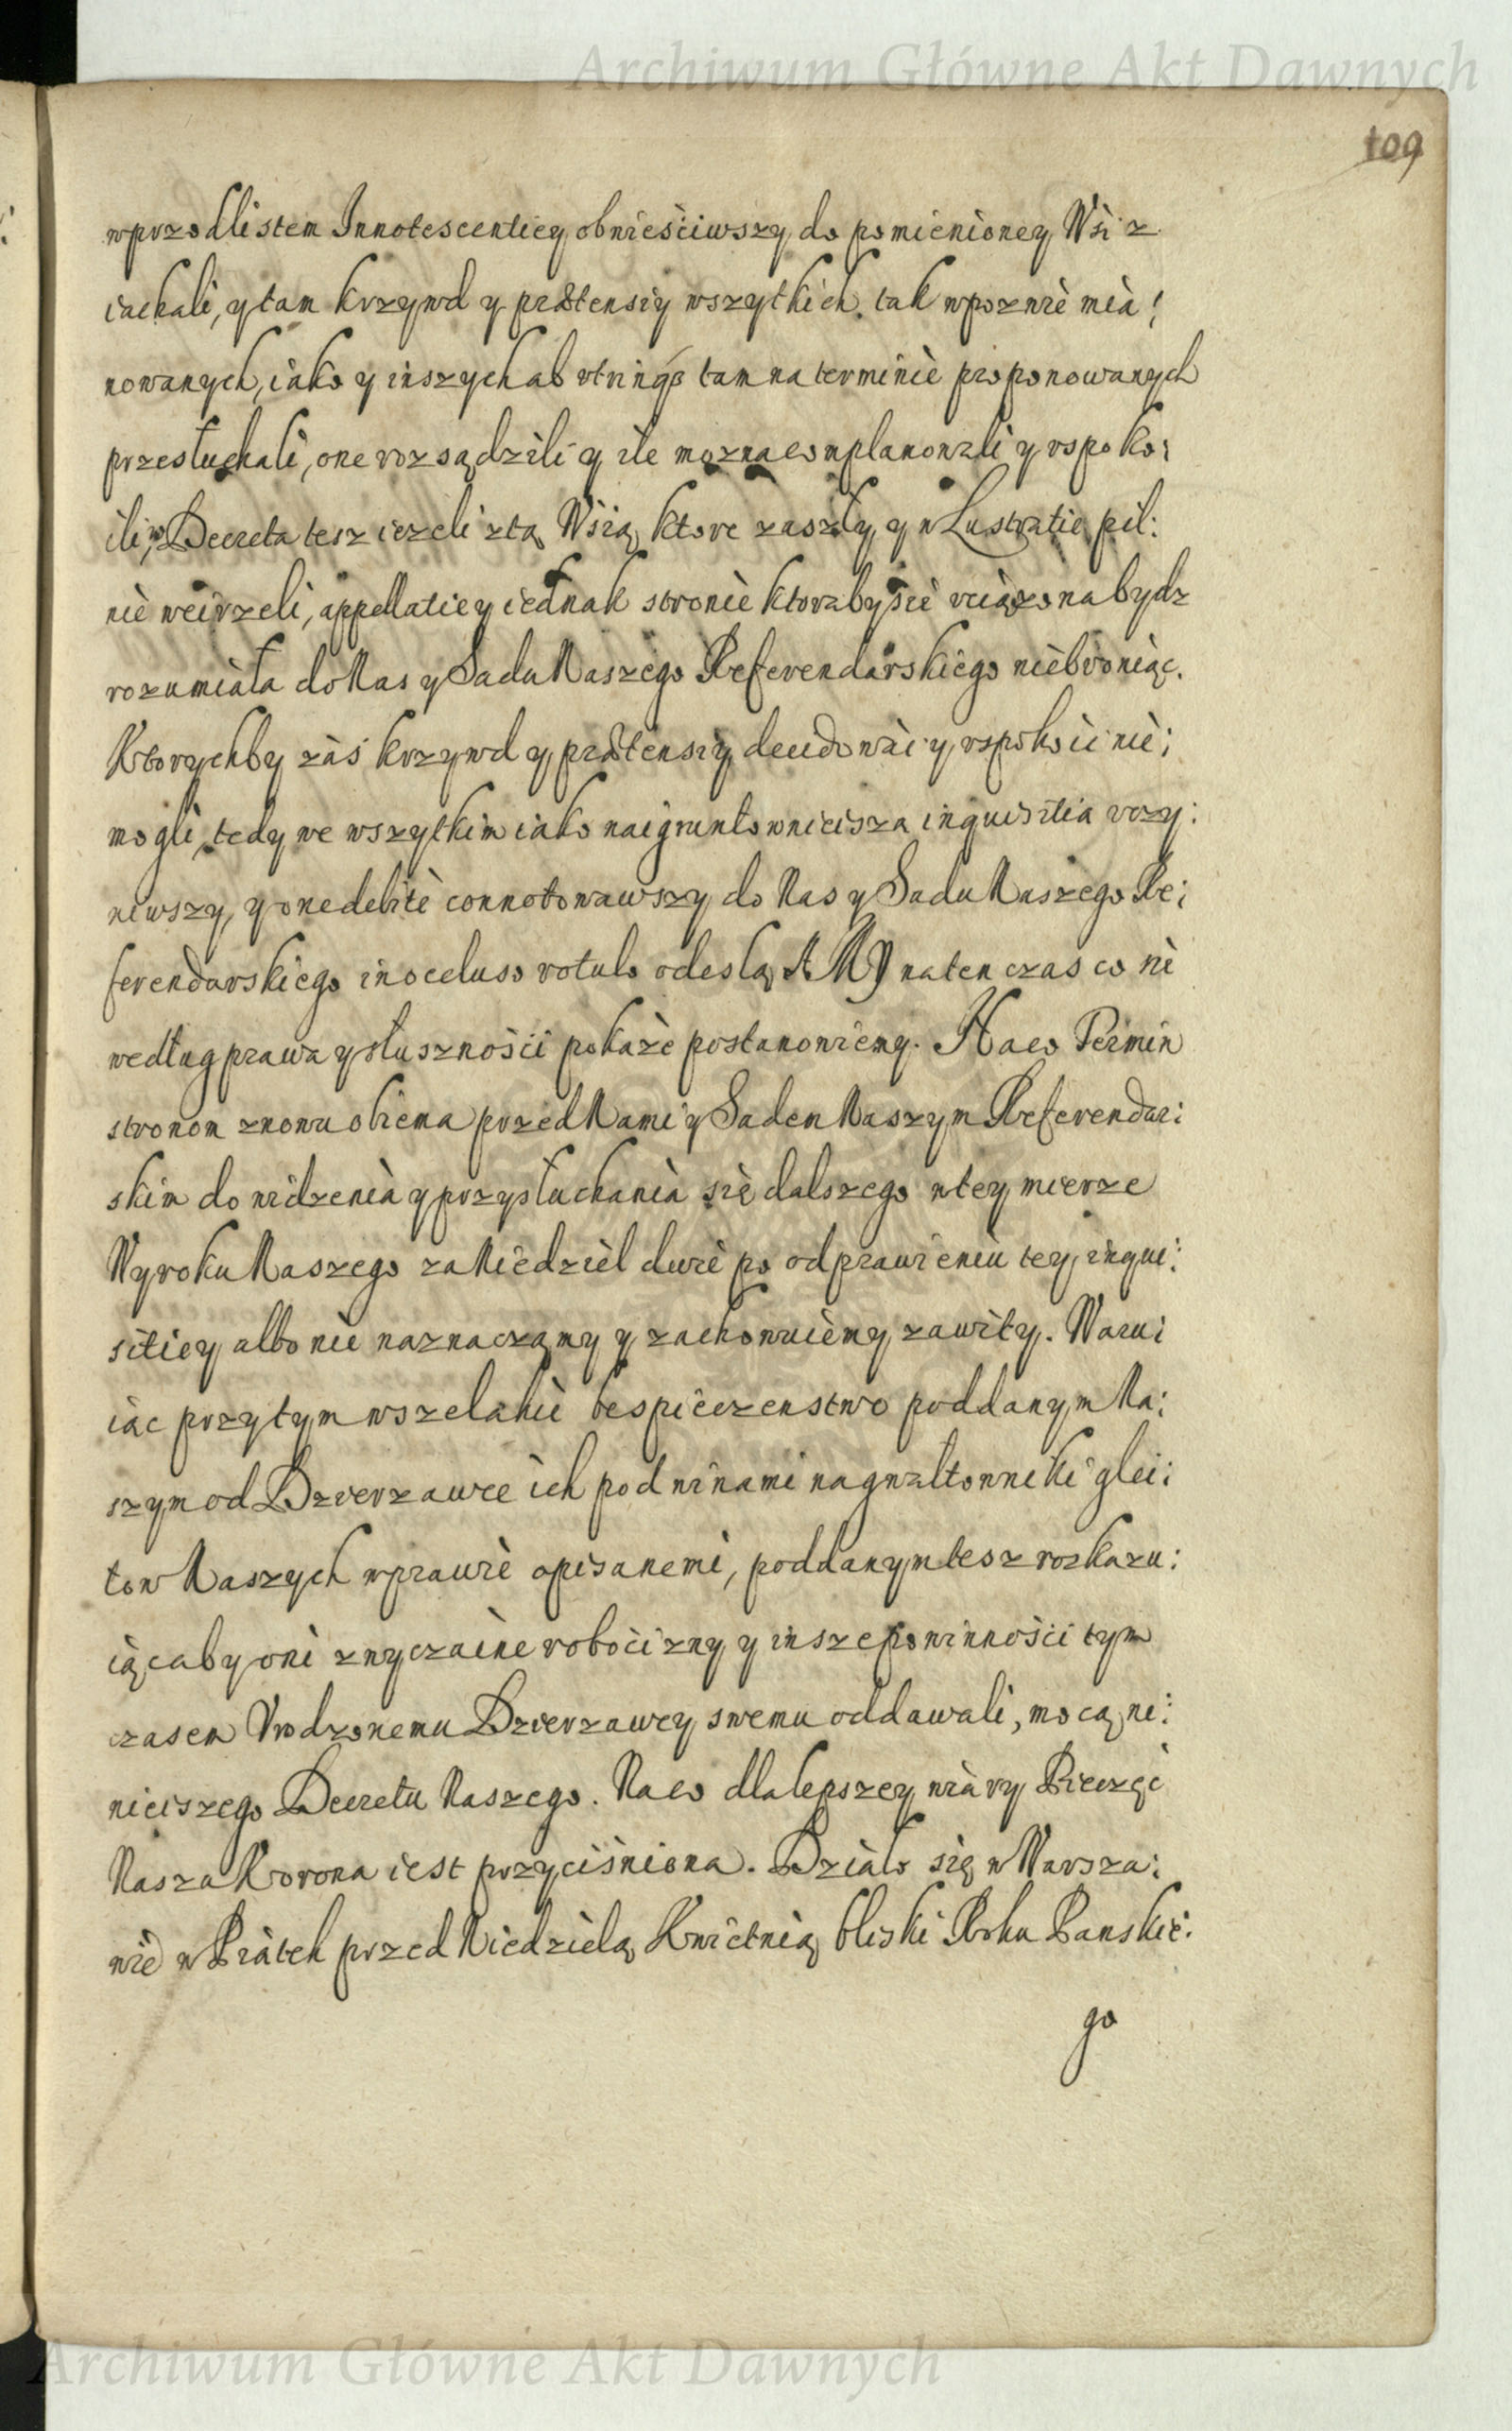 Archiwum Główne Akt Dawnych
109
wprzod listem Innotescentiey obwieściwszy do pomienioney Wsi z
iachali, y tam krzywd y prætensiy wszytkich, tak w pozwie mia:
nowanych, iako y inszych ab utrinq tam na terminie proponowanych
przesłuchali, one rozsądzili y ile można complanowali y uspoko:
ili, w Decreta tesz iezeli z tą Wsią ktore zaszły y w Lustratie pil:
nie weirzeli, appellatiey iednak stronie ktoraby się uciążona bydz
rozumiała do Nas y Sadu Naszego Referendarskiego niebroniąc.
Ktorychby zaś krzywd y prætensiy decidowac y uspokoic nie:
mogli, tedy we wszytkim iako naigruntownieisza inquisitia uczy:
niwszy, y one debite connotowawszy do Nas y Sadu Naszego Re:
ferendarskiego in occluso rotulo odeslą. A MY na ten czas co nie
według prawa y słusznośći pokaże postanowiemy. Na co Termin
stronom znowu obiema przed Nami y Sadem Naszym Referendar:
skim do widzenia y przysłuchania się dalszego w tey mierze
Wyroku Naszego za Niedziel dwie po odprawieniu tey inqui:
sitiey albo nie naznaczamy y zachowuiemy zawity. Waru:
iąc przytym wszelakie bespieczenstwo poddanym Na:
szym od Dzierzawce ich pod winami na gwaltowniki glei:
tow Naszych w prawie opisanemi, poddanym tesz rozkazu:
iąc aby oni zwyczaine robocizny y insze powinności tym
czasem Urodzonemu Dzierzawcy swemu oddawali, mocą ni:
nieiszego Decretu Naszego. Na co dla lepszey wiary Pieczęć
Nasza Korona iest przyciśniona. Działo się w Warsza:
wie w Piątek przed Niedzielą Kwietnią bliski Roku Panskie:
go
Archiwum Główne Akt Dawnych